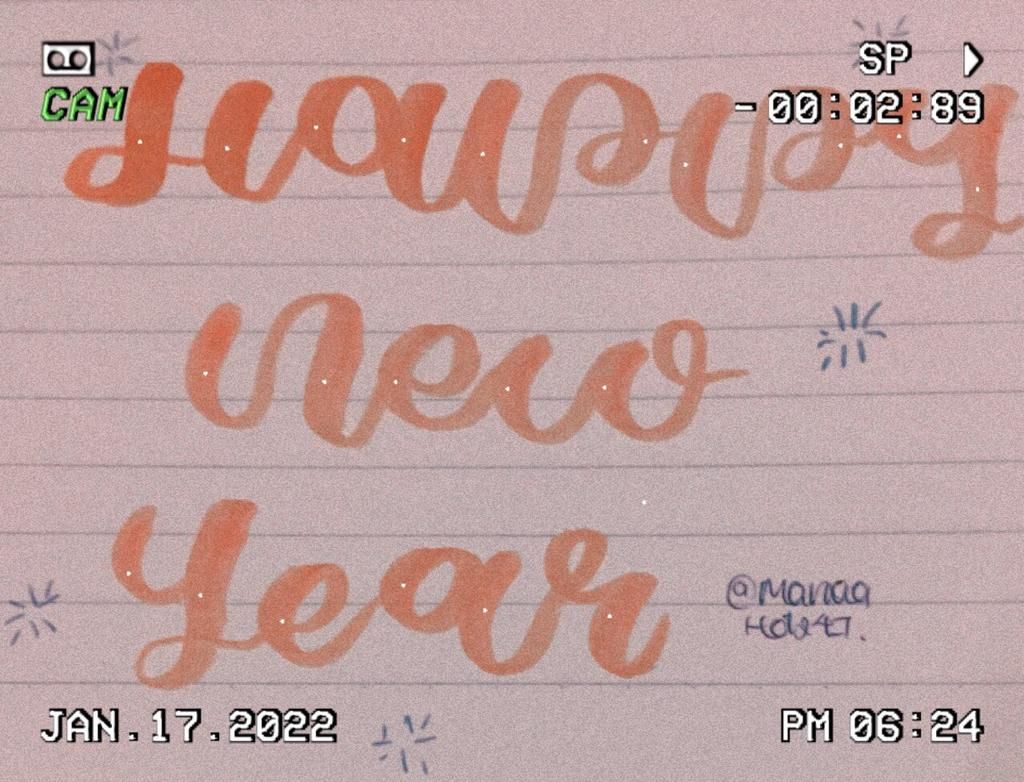 SP
CAM
-00:02:89
Happy
new
Year
@Manaa
JAN.17.2022
PM 06:24